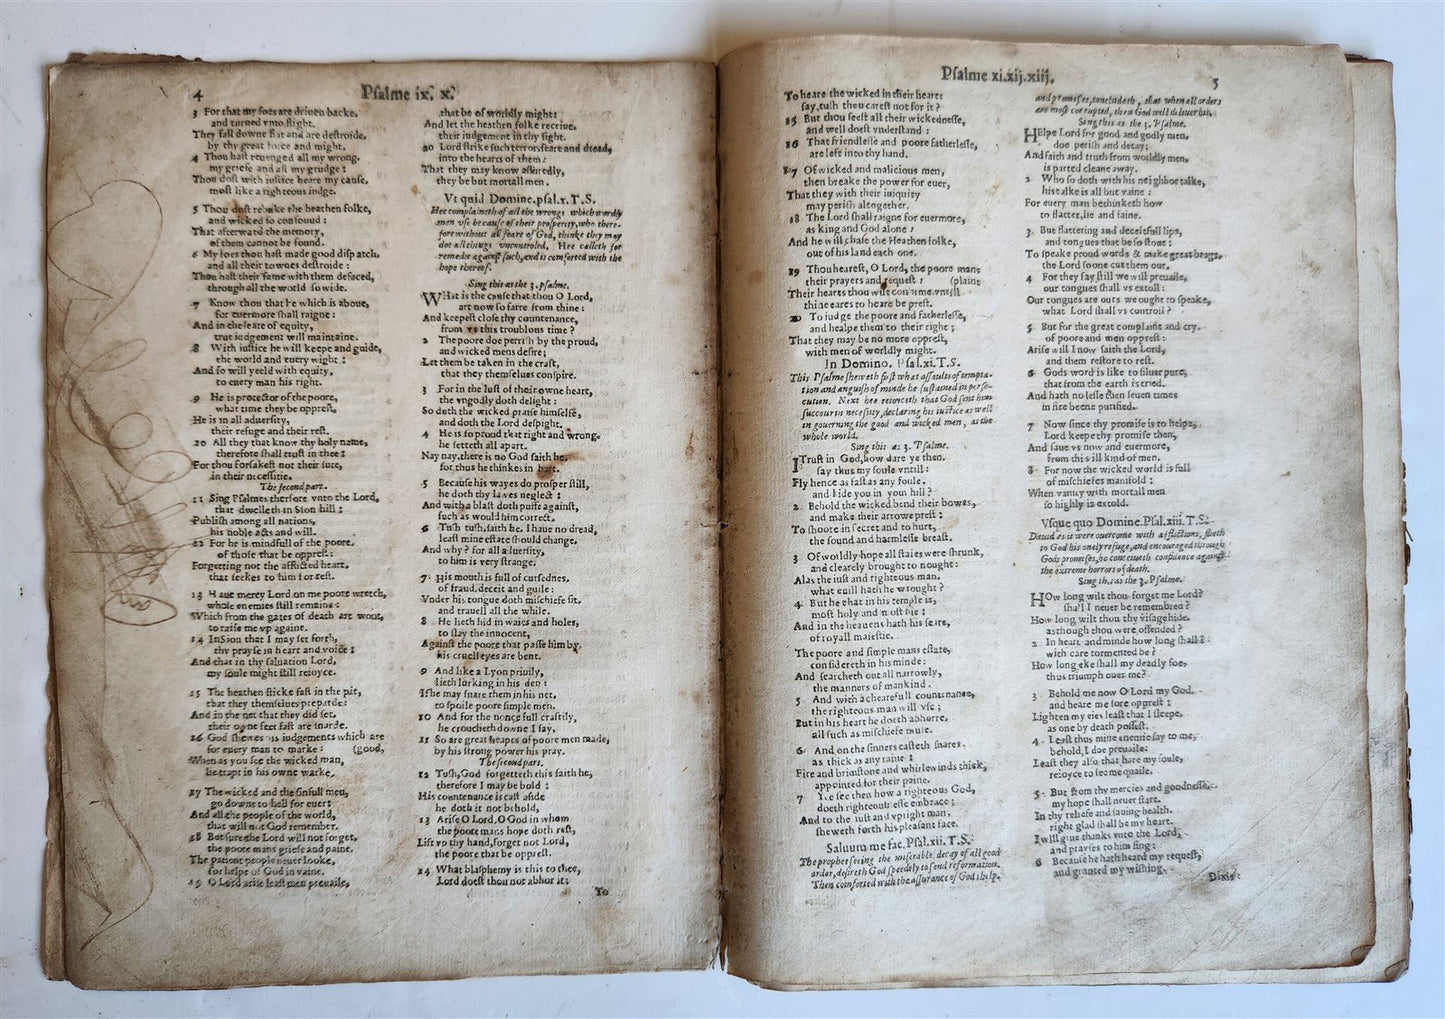 4
Psalme ix. x.
3 For that my foes are driuen backe,
and turned vnto flight.
They fall downe flat and are destroide,
by thy great force and might.
4 Thou hast reuenged all my wrong,
my griefe and all my grudge:
Thou dost with iustice heare my cause,
most like a righteous iudge.
5 Thou dost rebuke the heathen folke,
and wicked so confound:
That afterward the memory,
of them cannot be found.
6 My foes thou hast made good dispatch,
and all their townes destroide:
Thou hast their fame with them defaced,
through all the world so wide.
7 Know thou that he which is aboue,
for euermore shall raigne:
And in the seate of equity,
true iudgement will maintaine.
8 With iustice he will keepe and guide,
the world and euery wight:
And so will yeeld with equity,
to euery man his right.
9 He is protector of the poore,
what time they be opprest,
He is in all aduersity,
their refuge and their rest.
10 All they that know thy holy name,
therefore shall trust in thee:
For thou forsakest not their sute,
in their necessitie.
The second part.
11 Sing Psalmes therfore vnto the Lord,
that dwelleth in Sion hill:
Publish among all nations,
his noble acts and will.
12 For he is mindfull of the poore,
of those that be opprest:
Forgetting not the afflicted heart,
that seekes to him for rest.
13 Haue mercy Lord on me poore wretch,
whose enemies still remaine:
Which from the gates of death are wont,
to raise me vp againe.
14 In Sion that I may set forth,
thy prayse in heart and voice:
And that in thy saluation Lord,
my soule might still reioyce.
15 The heathen sticke fast in the pit,
that they themselues preparde:
And in the net that they did set,
their owne feet fast are snarde.
16 God shewes his iudgements which are
for euery man to marke: (good,
When as you see the wicked man,
lie trapt in his owne warke.
17 The wicked and the sinfull men,
go downe to hell for euer:
And all the people of the world,
that will not God remember.
18 But sure the Lord will not forget,
the poore mans griefe and paine.
The patient people neuer looke,
for helpe of God in vaine.
19 O Lord arise least men preuaile,
that be of worldly might:
And let the heathen folke receiue,
their iudgement in thy sight.
20 Lord strike such terror, feare and dread,
into the hearts of them:
That they may know assuredly,
they be but mortall men.
Vt quid Domine. psal.x. T.S.
Hee complaineth of all the wrongs which wordly
men vse because of their prosperity, who there-
fore without all feare of God, thinke they may
doe all things vncontroled. Hee calleth for
remedie against such, and is comforted with the
hope thereof.
Sing this as the 3. psalme.
WHat is the cause that thou O Lord,
art now so farre from thine:
And keepest close thy countenance,
from vs this troublous time?
2 The poore doe perrish by the proud,
and wicked mens desire;
Let them be taken in the craft,
that they themselues conspire.
3 For in the lust of their owne heart,
the vngodly doth delight:
So doth the wicked praise himselfe,
and doth the Lord despight.
4 He is so proud that right and wrong,
he setteth all apart.
Nay nay, there is no God saith he,
for thus he thinkes in hart.
5 Because his wayes do prosper still,
he doth thy lawes neglect:
And with a blast doth puffe against,
such as would him correct.
6 Tush tush, saith he, I haue no dread,
least mine estate should change.
And why? for all aduersity,
to him is very strange.
7 His mouth is full of cursednes,
of fraud, deceit and guile:
Vnder his tongue doth mischiefe sit,
and trauell all the while.
8 He lieth hid in waies and holes,
to slay the innocent,
Against the poore that passe him by,
his cruell eyes are bent.
9 And like a Lyon priuily,
lieth lurking in his den:
If he may snare them in his net,
to spoile poore simple men.
10 And for the nonce full craftily,
he croucheth downe I say,
11 So are great heapes of poore men made,
by his strong power his pray.
The second part.
12 Tush, God forgetteth this saith he,
therefore I may be bold:
His countenance is cast aside
he doth it not behold,
13 Arise O Lord, O God in whom
the poore mans hope doth rest,
Lift vp thy hand, forget not Lord,
the poore that be opprest.
14 What blasphemy is this to thee,
Lord doest thou not abhor it:
To
Psalme xi.xij.xiij.
5
To heare the wicked in their heart
say, tush thou carest not for it?
15 But thou seest all their wickednesse,
and well doest vnderstand:
16 That friendlesse and poore fatherlesse,
are left into thy hand.
17 Of wicked and malicious men,
then breake the power for euer,
That they with their iniquity
may perish altogether.
18 The Lord shall raigne for euermore,
as king and God alone:
And he will chase the Heathen folke,
out of his land each one.
19 Thou hearest, O Lord, the poore mans
their prayers and request: (plaint
Their hearts thou wilt continue, vntill
thine eares to heare be prest.
20 To iudge the poore and fatherlesse,
and healpe them to their right;
That they may be no more opprest,
with men of worldly might.
In Domino. Psal.xi. T.S.
This Psalme sheweth first what assaults of tempta-
tion and anguish of minde he sustained in perse-
cution. Next hee reioyceth that God sent him
succour in necessity, declaring his iustice as well
in gouerning the good and wicked men, as the
whole world.
Sing this as 3. Psalme.
I Trust in God, how dare ye then,
say thus my soule vntill:
Fly hence as fast as any foule,
and hide you in your hill?
2 Behold the wicked bend their bowes,
and make their arrowe prest:
To shoote in secret and to hurt,
the sound and harmlesse breast.
3 Of worldly hope all staies were shrunk,
and clearely brought to nought:
Alas the iust and righteous man,
what euill hath he wrought?
4 But he that in his temple is,
most holy and most hie:
And in the heauens hath his seate,
of royall maiestie.
The poore and simple mans estate,
considereth in his minde:
And searcheth out all narrowly,
the manners of mankind.
5 And with a chearefull countenance,
the righteous man will vse;
But in his heart he doeth abhorre,
all such as mischiefe muse.
6 And on the sinners casteth snares,
as thick as any raine:
Fire and brimstone and whirlewinds thick,
appointed for their paine.
7 Ye see then how a righteous God,
doeth righteousnesse embrace;
And to the iust and vpright man,
sheweth forth his pleasant face.
Saluum me fac. Psal.xii. T.S.
The prophet seeing the miserable decay of all good
order, desireth God speedely to send reformation.
Then comforted with the assurance of Gods help,
and promises, concludeth, that when all orders
are most corrupted, then God will deliuer his.
Sing this as the 3. Psalme.
HElpe Lord for good and godly men,
doe perish and decay:
And faith and truth from worldly men,
is parted cleane away.
2 Who so doth with his neighbor talke,
his talke is all but vaine:
For euery man bethinketh how
to flatter, lie and faine.
3 But flattering and deceitfull lips,
and tongues that be so stout:
To speake proud words & make great brags,
the Lord soone cut them out.
4 For they say still we will preuaile,
our tongues shall vs extoll:
Our tongues are ours we ought to speake,
what Lord shall vs controll?
5 But for the great complaint and cry,
of poore and men opprest:
Arise will I now saith the Lord,
and them restore to rest.
6 Gods word is like to siluer pure,
that from the earth is tried.
And hath no lesse then seuen times
in fire beene purified.
7 Now since thy promise is to helpe,
Lord keepe thy promise then,
And saue vs now and euermore,
from this ill kind of men.
8 For now the wicked world is full
of mischiefes manifold:
When vanity with mortall men
so highly is extold.
Vsque quo Domine. Psal.xiii. T.S.
Dauid as it were ouercome with afflictions, flieth
to God his onely refuge, and encouraged through
Gods promises, he conceiueth confidence against
the extreme horrors of death.
Sing this as the 3. Psalme.
HOw long wilt thou forget me Lord?
shal I neuer be remembred?
How long wilt thou thy visage hide,
as though thou were offended?
2 In heart and minde how long shall I
with care tormented be?
How long eke shall my deadly foe,
thus triumph ouer me?
3 Behold me now O Lord my God,
and heare me sore opprest:
Lighten my eies least that I sleepe,
as one by death possest.
4 Least thus mine enemie say to me,
behold, I doe preuaile:
Least they also that hate my soule,
reioyce to see me quaile.
5 But from thy mercies and goodnesse,
my hope shall neuer start.
In thy reliefe and sauing health,
right glad shall be my heart.
I will giue thanks vnto the Lord,
and prayses to him sing:
6 Because he hath heard my request,
and granted my wishing.
Dixit